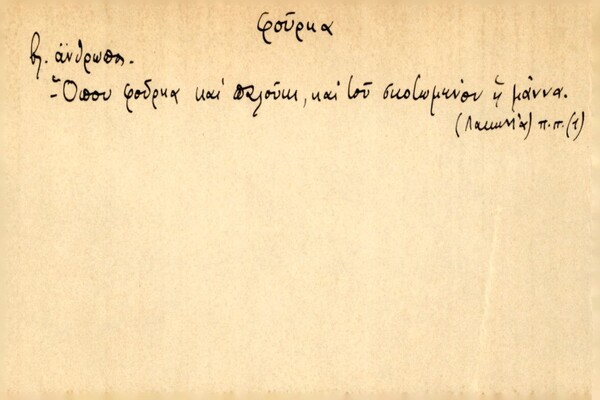 φοῦρκα
βλ. ἄνθρωπος.
- Ὅπου φοῦρκα καί παλούκι, καί τοῦ σκοτωμένου ἡ μάννα.
(Λακωνία) π.π. (1)